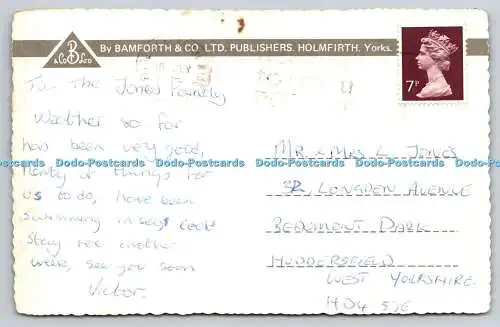 B
& CO LTD
By BAMFORTH & CO. LTD. PUBLISHERS. HOLMFIRTH. Yorks.
7P
To The Jones Family
Weather so far
has been very good,
Plenty of things for
us to do, have been
swimming in sea, could
stay here another
week, see you soon
Victor.
MR & MRS L. JONES
32, LONGDEN AVENUE
BEAUMONT PARK
HUDDERSFIELD
WEST YORKSHIRE.
HD4
Dodo-Postcards Dodo-Postcards Dodo-Postcards Dodo-Postcards Dodo-Postcards Dodo-Postcards